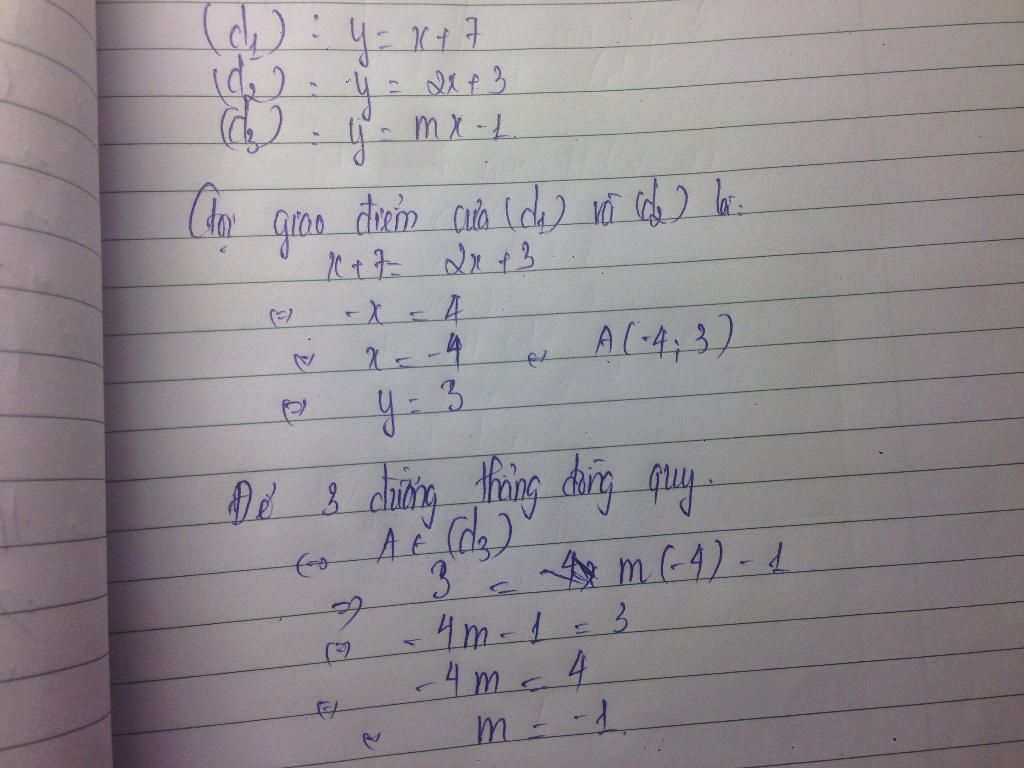 (d₁) : y = x + 7
(d₂) : y = 2x + 3
(d₃) : y = mx - 1
Gọi giao điểm của (d₁) và (d₂) là:
x + 7 = 2x + 3
⇔ -x = 4
⇔ x = -4 ⇔ A(-4; 3)
⇔ y = 3
Để 3 đường thẳng đồng quy.
⇔ A ∈ (d₃)
⇒ 3 = m(-4) - 1
⇔ -4m - 1 = 3
⇔ -4m = 4
⇔ m = -1.